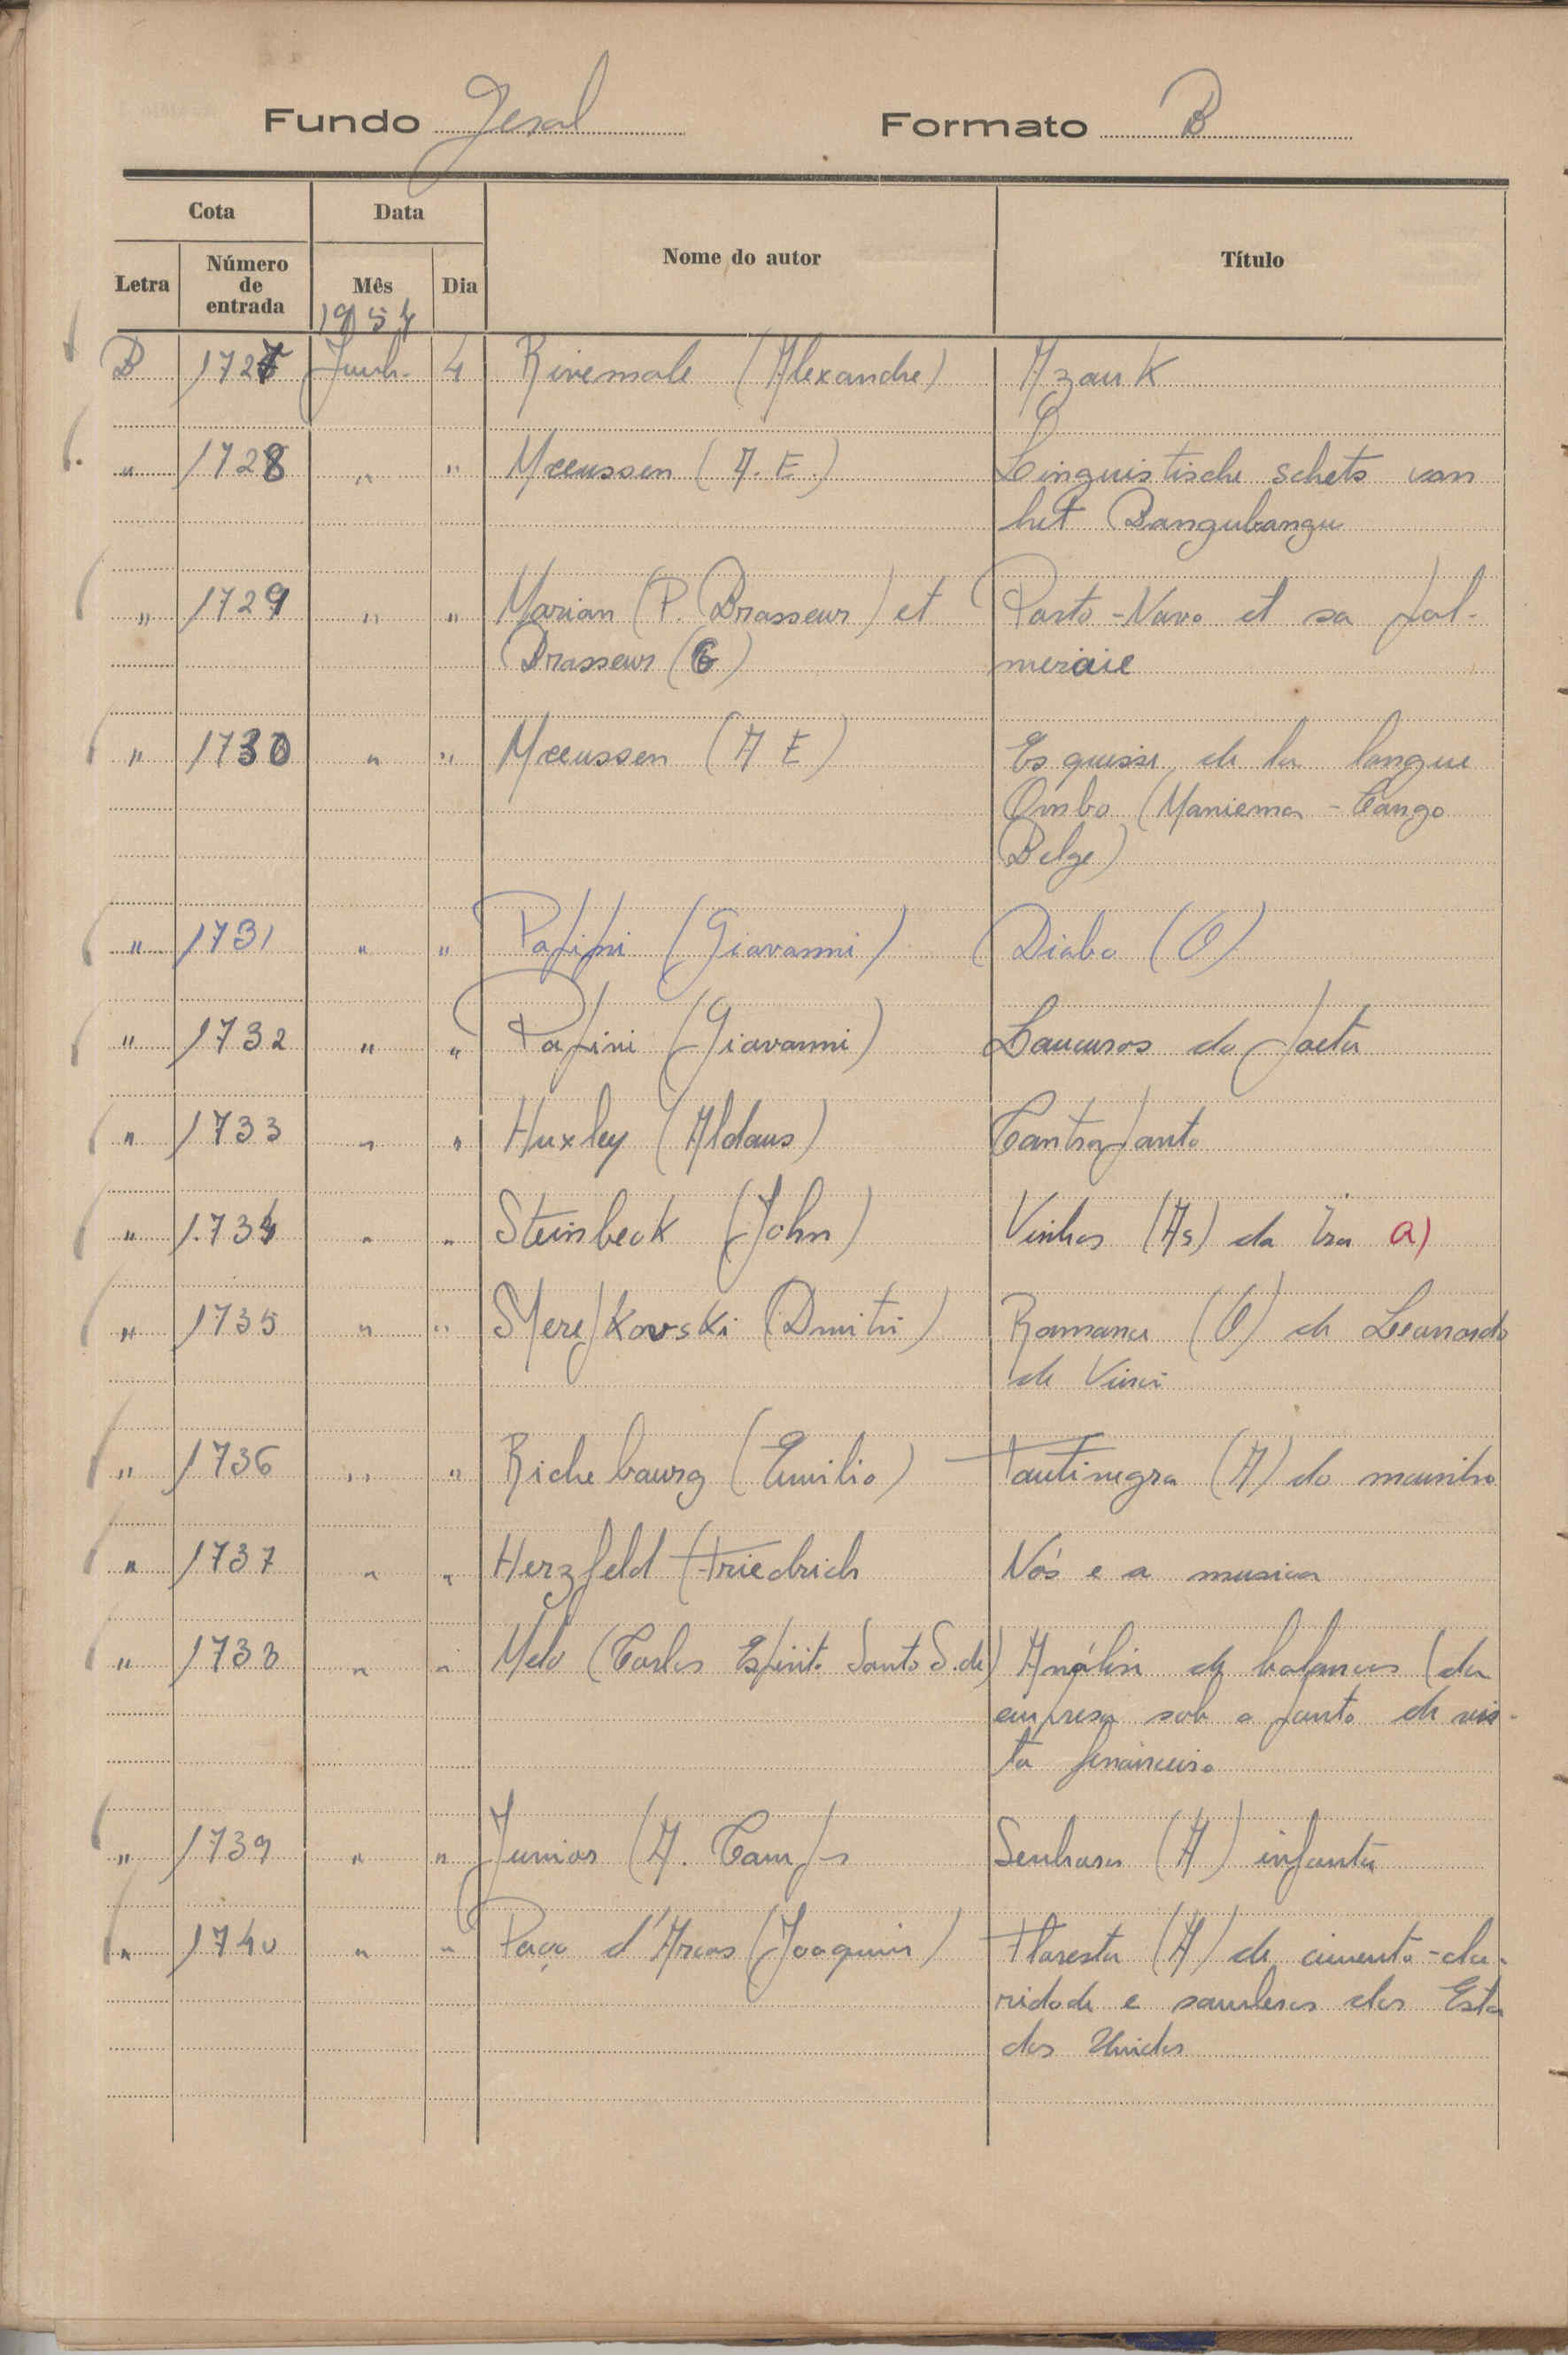 Fundo Geral Formato B
Cota Data Nome do autor Título
Letra Número de entrada Mês Dia
1954
B 1727 Junh. 4 Rivemale (Alexandre) Azouk
" 1728 " " Meeussen (A. E.) Linguistische schets van
het Bangubangu
" 1729 " " Marian (P. Brasseur) et Porto-Novo et sa pal-
Brasseur (G) meraie
" 1730 " " Meeussen (A E) Esquisse de la langue
Ombo (Maniema - Congo
Belge)
" 1731 " " Papini (Giovanni) Diabo (O)
" 1732 " " Papini (Giovanni) Loucuras do poeta
" 1733 " " Huxley (Aldous) Contraponto
" 1.734 " " Steinbeck (John) Vinhas (As) da Ira a)
" 1735 " " Merejkovski (Dmitri) Romance (O) de Leonardo
de Vinci
" 1736 " " Richebourg (Emilio) Toutinegra (A) do moinho
" 1737 " " Herzfeld (Friedrich Nós e a musica
" 1738 " " Melo (Carlos Espirito Santo S. de) Análise de balanços (da
empresa sob o ponto de vis-
ta financeiro
" 1739 " " Junior (A. Campos Senhora (A) infanta
" 1740 " " Paço d'Arcos (Joaquim) Floresta (A) de cimento-cla-
ridade e sombras dos Esta
dos Unidos